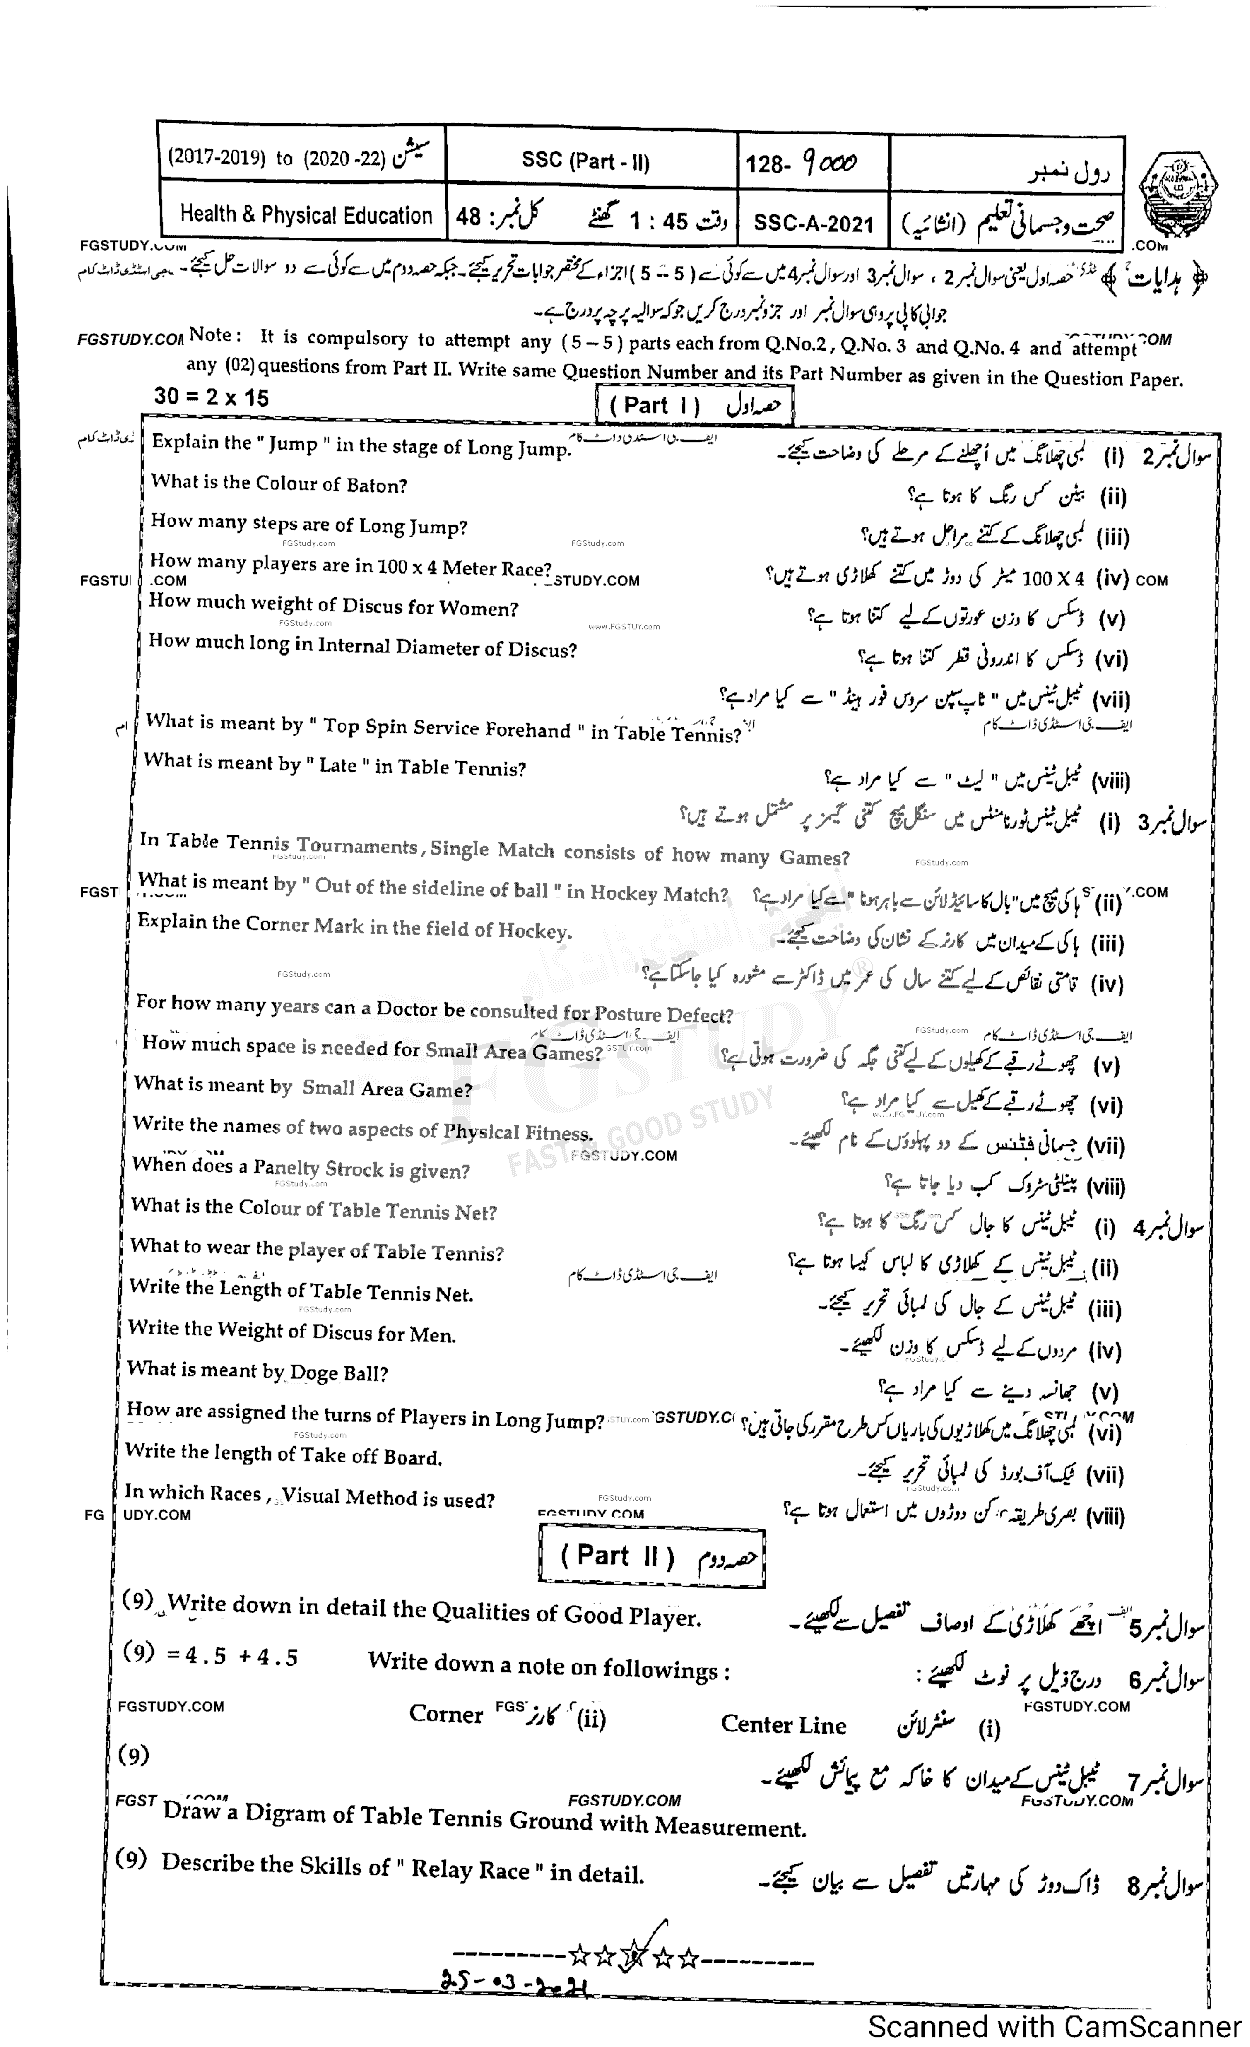 (2017-2019) to (2020-22) سیشن SSC (Part - II) 128- 9000 رول نمبر
Health & Physical Education کل نمبر: 48 وقت 1 : 45 گھنٹے SSC-A-2021 صحت و جسمانی تعلیم (انشائیہ)
FGSTUDY.COM .COM
﴿ ہدایات ﴾ حصہ اول یعنی سوال نمبر 2 ، سوال نمبر 3 اور سوال نمبر 4 میں سے کوئی سے (5 – 5) اجزاء کے مختصر جوابات تحریر کیجئے۔ جبکہ حصہ دوم میں سے کوئی سے دو سوالات حل کیجئے۔
جوابی کاپی پر وہی سوال نمبر اور جزو نمبر درج کریں جو کہ سوالیہ پرچہ پر درج ہے۔
FGSTUDY.COM Note : It is compulsory to attempt any (5 – 5) parts each from Q.No.2 , Q.No. 3 and Q.No. 4 and attempt
any (02) questions from Part II. Write same Question Number and its Part Number as given in the Question Paper.
30 = 2 x 15 ( Part I ) حصہ اول
Explain the " Jump " in the stage of Long Jump. سوال نمبر 2 (i) لمبی چھلانگ میں اُچھلنے کے مرحلے کی وضاحت کیجئے۔
What is the Colour of Baton? (ii) بیٹن کس رنگ کا ہوتا ہے؟
How many steps are of Long Jump? (iii) لمبی چھلانگ کے کتنے مراحل ہوتے ہیں؟
FGStudy.com FGStudy.com
How many players are in 100 x 4 Meter Race? (iv) 100 X 4 میٹر کی دوڑ میں کتنے کھلاڑی ہوتے ہیں؟
How much weight of Discus for Women? (v) ڈسکس کا وزن عورتوں کے لیے کتنا ہوتا ہے؟
FGStudy.com
How much long in Internal Diameter of Discus? (vi) ڈسکس کا اندرونی قطر کتنا ہوتا ہے؟
(vii) ٹیبل ٹینس میں " ٹاپ سپن سروس فور ہینڈ " سے کیا مراد ہے؟
What is meant by " Top Spin Service Forehand " in Table Tennis? ایف جی اسٹڈی ڈاٹ کام
What is meant by " Late " in Table Tennis? (viii) ٹیبل ٹینس میں " لیٹ " سے کیا مراد ہے؟
سوال نمبر 3 (i) ٹیبل ٹینس ٹورنامنٹس میں سنگل میچ کتنی گیمز پر مشتمل ہوتے ہیں؟
In Table Tennis Tournaments, Single Match consists of how many Games? FGStudy.com
What is meant by " Out of the sideline of ball " in Hockey Match? (ii) ہاکی میچ میں "بال کا سائیڈ لائن سے باہر ہونا" سے کیا مراد ہے؟
Explain the Corner Mark in the field of Hockey. (iii) ہاکی کے میدان میں کارنر کے نشان کی وضاحت کیجئے۔
FGStudy.com (iv) قامتی نقائص کے لیے کتنے سال کی عمر میں ڈاکٹر سے مشورہ کیا جا سکتا ہے؟
For how many years can a Doctor be consulted for Posture Defect?
FGStudy.com ایف جی اسٹڈی ڈاٹ کام
How much space is needed for Small Area Games? (v) چھوٹے رقبے کے کھیلوں کے لیے کتنی جگہ کی ضرورت ہوتی ہے؟
FGSTUDY
FAST & GOOD STUDY
What is meant by Small Area Game? (vi) چھوٹے رقبے کے کھیل سے کیا مراد ہے؟
Write the names of two aspects of Physical Fitness. (vii) جسمانی فٹنس کے دو پہلوؤں کے نام لکھیئے۔
FGSTUDY.COM
When does a Panelty Strock is given? (viii) پینلٹی سٹروک کب دیا جاتا ہے؟
FGStudy.com
What is the Colour of Table Tennis Net? سوال نمبر 4 (i) ٹیبل ٹینس کا جال کس رنگ کا ہوتا ہے؟
What to wear the player of Table Tennis? (ii) ٹیبل ٹینس کے کھلاڑی کا لباس کیسا ہوتا ہے؟
ایف جی اسٹڈی ڈاٹ کام
Write the Length of Table Tennis Net. (iii) ٹیبل ٹینس کے جال کی لمبائی تحریر کیجئے۔
FGStudy.com
Write the Weight of Discus for Men. (iv) مردوں کے لیے ڈسکس کا وزن لکھیئے۔
What is meant by Doge Ball? (v) جھانسہ دینے سے کیا مراد ہے؟
How are assigned the turns of Players in Long Jump? (vi) لمبی چھلانگ میں کھلاڑیوں کی باریاں کس طرح مقرر کی جاتی ہیں؟
FGStudy.com
Write the length of Take off Board. (vii) ٹیک آف بورڈ کی لمبائی تحریر کیجئے۔
In which Races , Visual Method is used? (viii) بصری طریقہ کن دوڑوں میں استعمال ہوتا ہے؟
FGSTUDY.COM
( Part II ) حصہ دوم
(9) Write down in detail the Qualities of Good Player. سوال نمبر 5 اچھے کھلاڑی کے اوصاف تفصیل سے لکھیئے۔
(9) = 4.5 + 4.5 Write down a note on followings : سوال نمبر 6 درج ذیل پر نوٹ لکھیئے :
FGSTUDY.COM FGSTUDY.COM
Corner کارنر (ii) Center Line سنٹر لائن (i)
(9) سوال نمبر 7 ٹیبل ٹینس کے میدان کا خاکہ مع پیمائش لکھیئے۔
FGSTUDY.COM FGSTUDY.COM
Draw a Digram of Table Tennis Ground with Measurement.
(9) Describe the Skills of " Relay Race " in detail. سوال نمبر 8 ڈاک دوڑ کی مہارتیں تفصیل سے بیان کیجئے۔
25-03-2021
Scanned with CamScanner